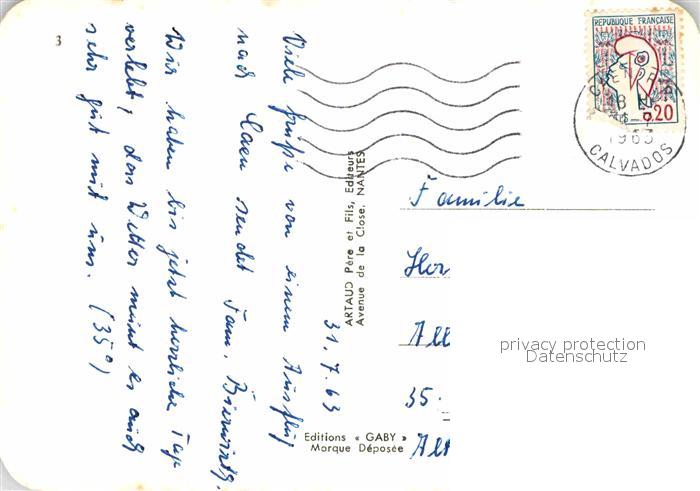 3
31.7.63
Viele Grüße von einem Ausflug
nach Caen sendet Fam.
Wir haben bis jetzt herrliche Tage
verlebt, das Wetter meint es auch
sehr gut mit uns. (35°)
ARTAUD Père et Fils, Editeurs
Avenue de la Close. NANTES
Editions « GABY »
Marque Déposée
REPUBLIQUE FRANÇAISE
0.20
1963
CALVADOS
Familie
Her
All
35.
Alt
privacy protection
Datenschutz